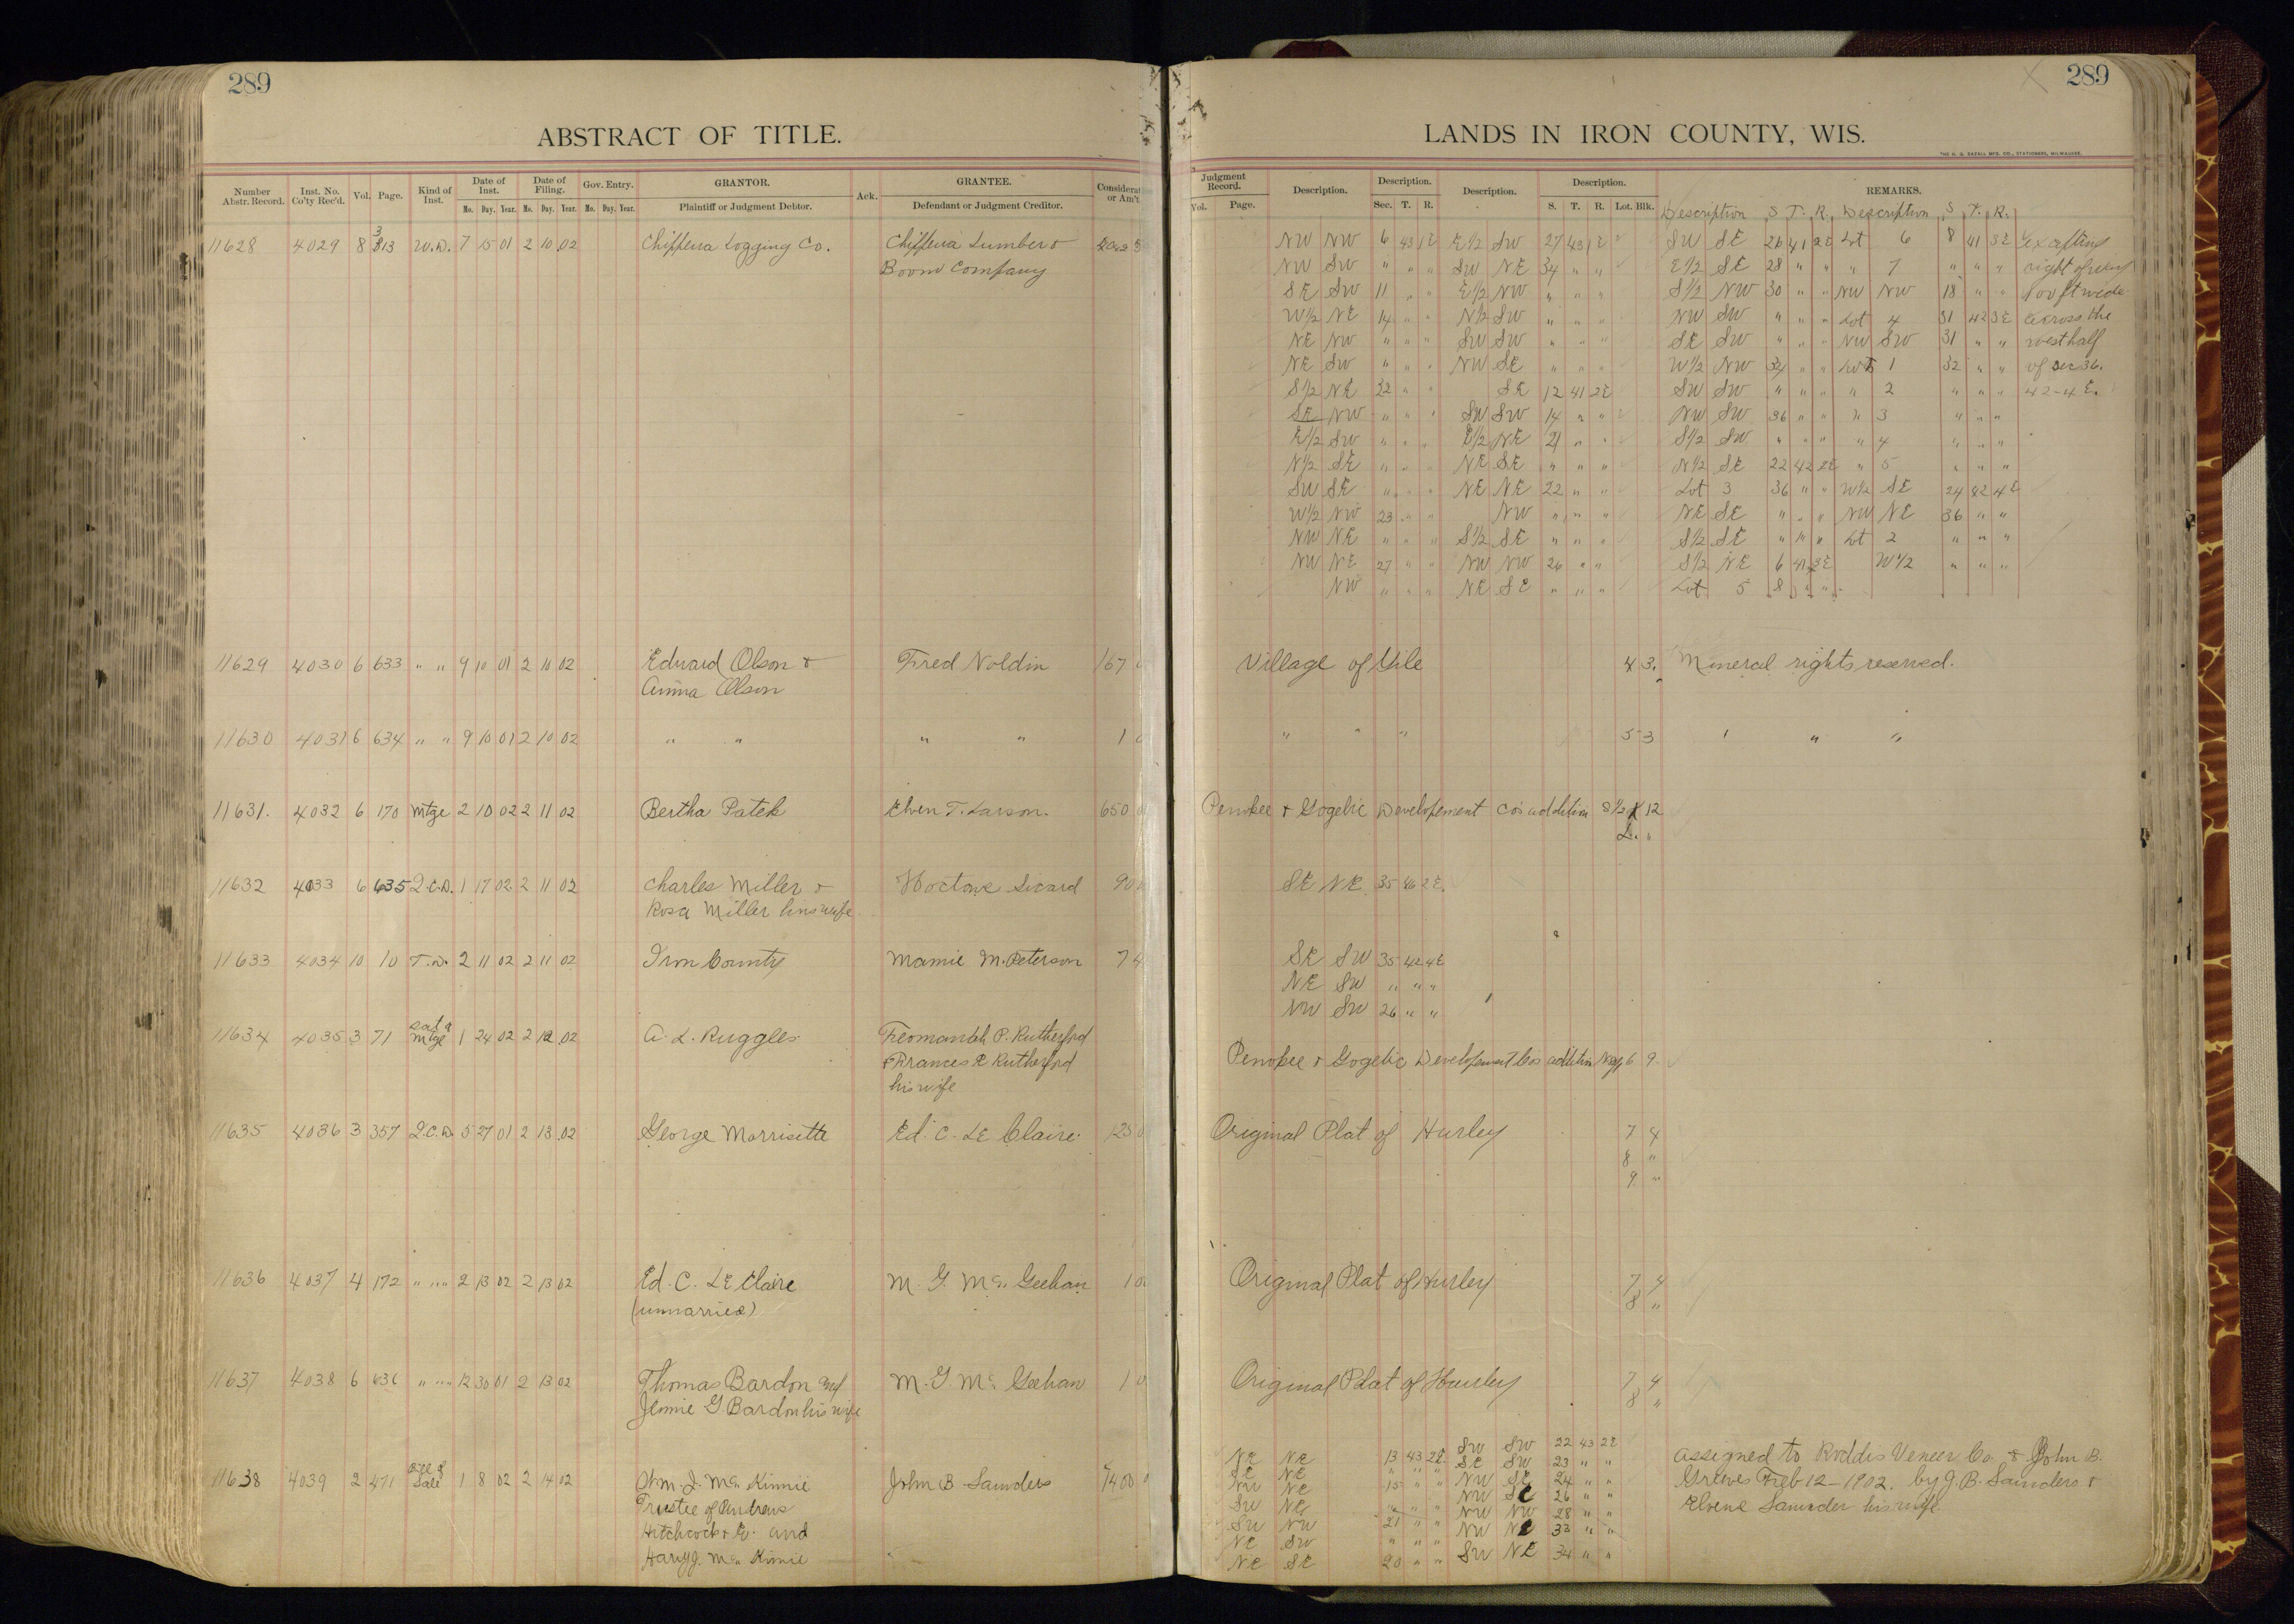 289
ABSTRACT OF TITLE.
Number Abstr. Record. Inst. No. Co'ty Rec'd. Vol. Page. Kind of Inst. Date of Inst. Date of Filing. Gov. Entry. GRANTOR. Ack. GRANTEE. Considerat or Am't
Mo. Day. Year. Mo. Day. Year. Mo. Day. Year. Plaintiff or Judgment Debtor. Defendant or Judgment Creditor.
11628 4029 8 W.D. 7 15 01 2 10 02 Chippewa Logging Co. Chippewa Lumber &
Boom Company
11629 4030 6 633 " " 9 10 01 2 10 02 Edward Olson & Fred Noldin 167
Anna Olson
11630 4031 6 634 " " 9 10 01 2 10 02 " " " " 1
11631. 4032 6 170 Mtge 2 10 02 2 11 02 Bertha Patek Even T. Larson. 650
11632 4033 6 635 Q.C.D. 1 17 02 2 11 02 Charles Miller & Hoctave Sicard 90
Rosa Miller his wife
11633 4034 10 10 T.D. 2 11 02 2 11 02 Iron County Mamie M. Peterson 7 4
11634 4035 3 71 Sat. Mtge 1 24 02 2 12 02 A. L. Ruggles P. Rutherford
& Frances E Rutherford
his wife
11635 4036 3 357 Q.C.D. 5 27 01 2 13 02 George Morrisette Ed. C. LE Claire. 125
11636 4037 4 172 " " " 2 13 02 2 13 02 Ed. C. LE Claire M. G. Mc Geehan 1 0
(unmarried)
11637 4038 6 636 " " " 12 30 01 2 13 02 Thomas Bardon and M. G. Mc Geehan 1 0
Jennie G. Bardon his wife
11638 4039 2 471 Bill of Sale 1 8 02 2 14 02 Wm. J. Mc Kinnie John B Saunders 7400
Trustee of Andrews
Hitchcock & Co. and
Harry J. Mc Kinnie
289
LANDS IN IRON COUNTY, WIS.
THE H. G. RAZALL MFG. CO., STATIONERS, MILWAUKEE.
Judgment Record. Description. Description. Description. Description. REMARKS.
Vol. Page. Sec. T. R. S. T. R. Lot. Blk. Description S T. R. Description S T. R.
NW NW 6 43 1E E1/2 SW 27 43 1E SW SE 26 41 2E Lot 6 8 41 3E excepting
NW SW " " " SW NE 34 " " E1/2 SE 28 " " " 7 " " " right of way
SE SW 11 " " E1/2 NW " " " S1/2 NW 30 " " NW NW 18 " " 100 ft wide
W1/2 NE 14 " " N1/2 SW " " " NW SW " " " Lot 4 31 42 3E across the
NE NW " " " SW SW " " " SE SW " " " NW SW 31 " " west half
NE SW " " " NW SE " " " W1/2 NW 34 " " Lot 1 32 " " of Sec 36.
S1/2 NE 22 " " SE 12 41 2E SW SW " " " " 2 " " " 42-4 E.
SE NW " " " SW SW 14 " " NW SW 36 " " " 3 " " "
E1/2 SW " " " E1/2 NE 21 " " S1/2 SW " " " " 4 " " "
N1/2 SE " " " NE SE " " " N1/2 SE 22 42 2E " 5 " " "
SW SE " " " NE NE 22 " " Lot 3 36 " " W1/2 SE 24 42 4E
W1/2 NW 23 " " NW " " " NE SE " " " NW NE 36 " "
NW NE " " " S1/2 SE " " " S1/2 SE " " " Lot 2 " " "
NW NE 27 " " NW NW 26 " " S1/2 NE 6 41 3E W1/2 " " "
NW " " " NE SE " " " Lot 5 8 " "
Village of Gile 4 3. Mineral rights reserved.
" " " 5 3 " " "
Penokee & Gogebic Developement Co's addition S1/2 12
SE NE 35 46 2E.
SE SW 35 42 4E
NE SW " " "
NW SW 26 " "
Penokee & Gogebic Developement Cos addition 6 9
Original Plat of Hurley 7 4
8 "
9 "
Original Plat of Hurley 7 4
8 "
Original Plat of Hurley 7 4
8 "
NE NE 13 43 2E SW SW 22 43 2E Assigned to Roddis Veneer Co. & John B.
SE NE " " " SE SW 23 " " Grieves Feb 12-1902. by J. B. Saunders &
NW NE 15 " " NW SE 24 " " Elvene Saunder his wife.
SW NE " " " NW SE 26 " "
SW NW 21 " " NW NW 28 " "
NE SW " " " NW NE 33 " "
NE SE 20 " " SW NE 34 " "